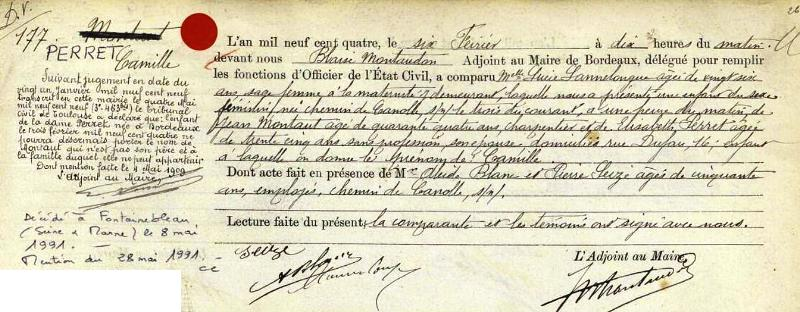 D.V.
177.
Montaut
PERRET
Camille
Suivant jugement en date du
vingt un janvier mil neuf cent neuf
transcrit en cette mairie le quatre Mai
mil neuf cent neuf le tribunal
civil de Toulouse a déclaré que: l'enfant
de la dame Perret, née à Bordeaux
le trois février mil neuf cent quatre ne
pourra désormais porter le nom de
Montaut qui n'est pas son père et à
la famille duquel elle ne peut appartenir
Dont mention faite le 4 Mai 1909
L'Adjoint au Maire,
Décédé à Fontainebleau
(Seine & Marne) le 8 mai
1991.
Mention du 28 mai 1991.
L'an mil neuf cent quatre, le six Février à dix heures du matin
devant nous Blaise Montaudon Adjoint au Maire de Bordeaux, délégué pour remplir
les fonctions d'Officier de l'État Civil, a comparu Melle Lucie Lannelongue âgée de vingt six
ans, sage femme à la maternité y demeurant, laquelle nous a présenté une enfant du sexe
féminin, né chemin de Canolle, s/n, le trois du courant, à une heure du matin, de
Jean Montaut âgé de quarante quatre ans, charpentier et de Elisabeth Perret âgée
de trente cinq ans sans profession, son épouse, domiciliés rue Dufau, 16; enfant
à laquelle on donne le prénom de Camille.
Dont acte fait en présence de M. Blanc et Pierre Seize âgés de cinquante
ans, employés, chemin de Canolle, s/n.
Lecture faite du présent, la comparante et les témoins ont signé avec nous.
Seize
L'Adjoint au Maire